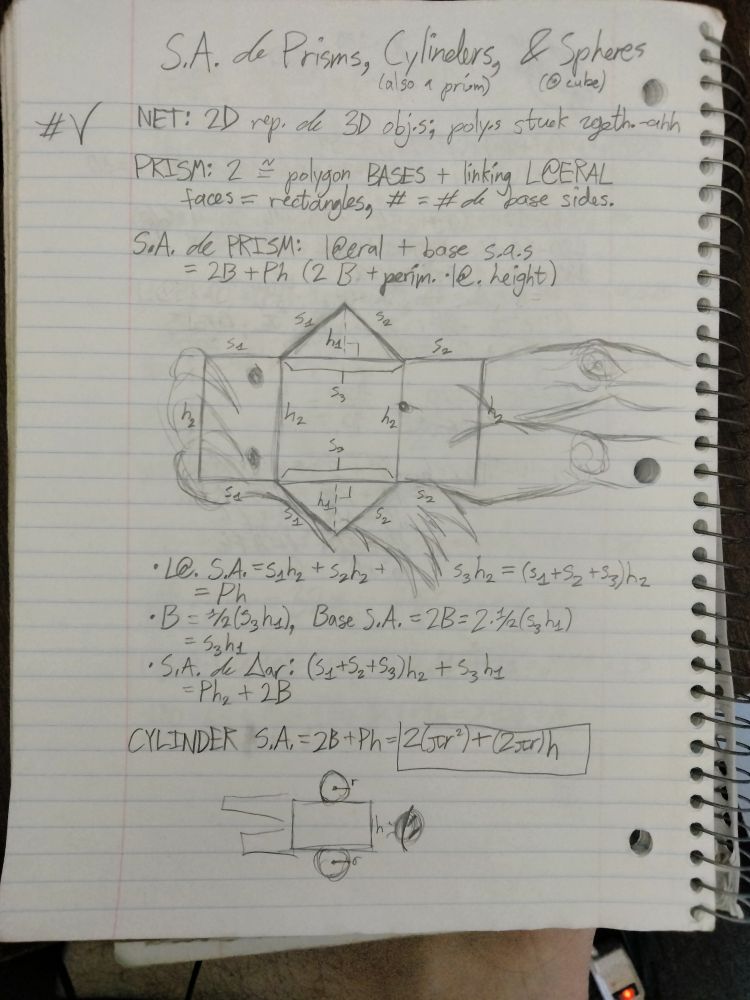 S.A. de Prisms, Cylinders, & Spheres
(also a prism) (@ cube)
#V NET: 2D rep. de 3D obj.s; poly.s stuck 2geth.-ahh
PRISM: 2 ≅ polygon BASES + linking L@ERAL
faces = rectangles, # = # de base sides.
S.A. de PRISM: l@eral + base s.a.s
= 2B + Ph (2 B + perim. · l@. height)
s1 s2
s1 h1 s2
s3
h2 h2 h2 h2
s3
s1 h1 s2
s1 s2
• L@. S.A. = s1h2 + s2h2 + s3h2 = (s1+s2+s3)h2
= Ph
• B = 1/2(s3h1), Base S.A. = 2B = 2·1/2(s3h1)
= s3h1
• S.A. de Δar: (s1+s2+s3)h2 + s3h1
= Ph2 + 2B
CYLINDER S.A. = 2B + Ph = 2(πr²) + (2πr)h
r
h
r